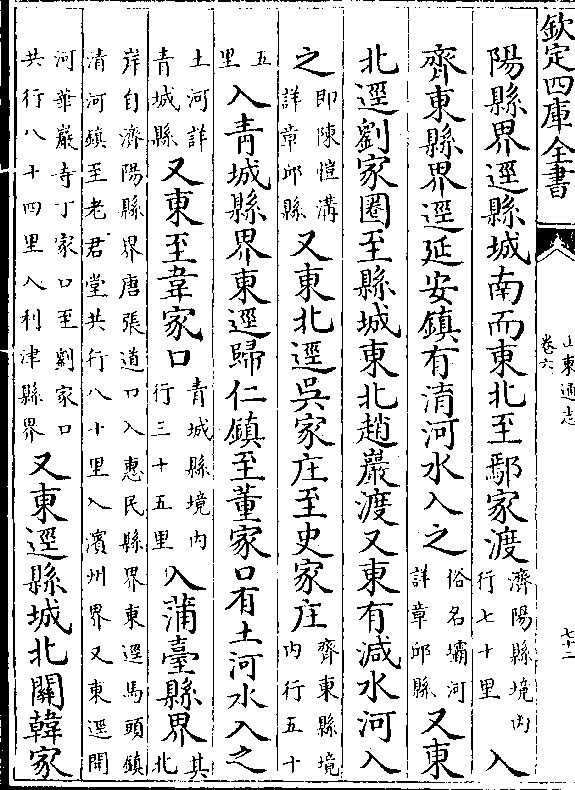 欽定四庫全書
山東通志
卷六
七十二
陽縣界逕縣城南而東北至鄢家渡濟陽縣境內行七十里入
齊東縣界逕延安鎮有清河水入之俗名壩河詳章邱縣又東
北逕劉家圈至縣城東北趙巖渡又東有減水河入
之即陳愷溝詳章邱縣又東北逕吳家庄至史家庄齊東縣境內行五十
五里入青城縣界東逕歸仁鎮至董家口有土河水入之
土河詳青城縣又東至韋家口青城縣境內行三十五里入蒲臺縣界其北
岸自濟陽縣界唐張道口入惠民縣界東逕馬頭鎮清河鎮至老君堂共行八十里入濱州界又東逕開
河華巖寺丁家口至劉家口共行八十四里入利津縣界又東逕縣城北關韓家